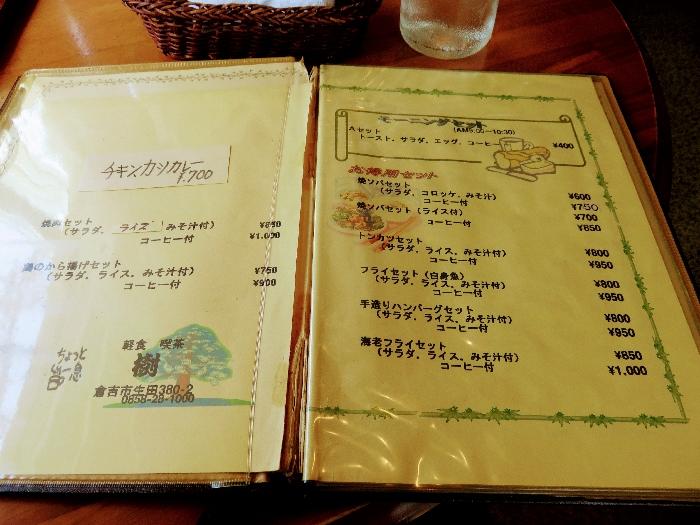 チキンカツカレー
¥.700
焼肉セット ¥850
(サラダ、ライス、みそ汁付) ¥1,000
コーヒー付
鶏のから揚げセット ¥750
(サラダ、ライス、みそ汁付) ¥900
コーヒー付
ちょっと
一息
軽食 喫茶
樹
倉吉市生田380-2
0858-28-1000
モーニングセット
(AM5:00~10:30)
Aセット
トースト、サラダ、エッグ、コーヒー ¥400
お得用セット
焼ソバセット
(サラダ、コロッケ、みそ汁) ¥600
コーヒー付 ¥750
焼ソバセット(ライス付) ¥700
コーヒー付 ¥850
トンカツセット
(サラダ、ライス、みそ汁付) ¥800
コーヒー付 ¥950
フライセット(白身魚)
(サラダ、ライス、みそ汁付) ¥800
コーヒー付 ¥950
手造りハンバーグセット
(サラダ、ライス、みそ汁付) ¥800
コーヒー付 ¥950
海老フライセット
(サラダ、ライス、みそ汁付) ¥850
コーヒー付 ¥1,000